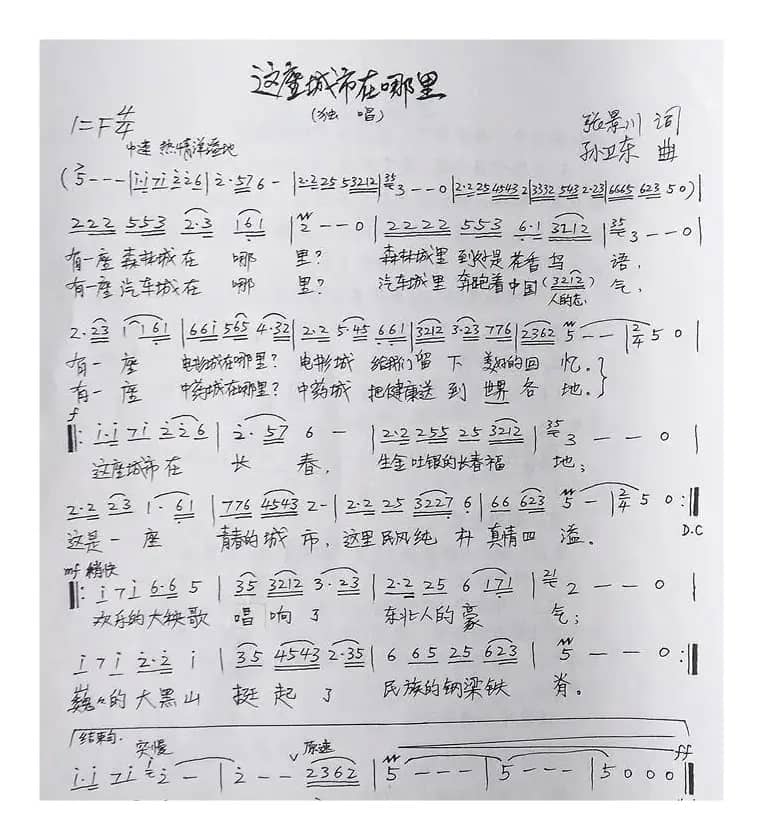 这座城市在哪里
(独 唱)
1=F 4/4
张景川 词
中速 热情洋溢地
孙卫东 曲
(5 - - - | i·i 7i 2 2 6 | 2· 57 6 - | 2·2 25 53212 | 35 3 - - 0 | 2·2 25 4543 2 | 3332 543 2·23 | 6665 623 5 0) |
222 553 2·3 161 | 2 - - 0 | 2222 553 6·1 3212 | 35 3 - - 0 |
有一座 森林城 在 哪 里? 森林城里 到处是 花香鸟 语,
有一座 汽车城 在 哪 里? 汽车城里 奔跑着 中国(3212 人的志) 气,
2·23 1 161 | 661 565 4·32 | 2·2 5·45 661 | 3212 3·23 776 | 2362 5 - - | 2/4 5 0 |
有一 座 电影城在哪里? 电影城 给我们 留 下 美好的回 忆。
有一 座 中药城在哪里? 中药城 把健康送 到 世界 各 地。
f
‖: i·i 7i 2 2 6 | 2· 57 6 - | 2·2 255 25 3212 | 35 3 - - 0 |
这座城市 在 长 春, 生金吐银的长春福 地;
2·2 23 1· 61 | 776 4543 2 - | 2·2 25 3227 6 | 66 623 5 - | 2/4 5 0 :‖
D.C
这是 一 座 青春的 城 市, 这里民风纯 朴 真情四 溢。
mf 稍快
‖: i 7 i 6·6 5 | 35 3212 3·23 | 2·2 25 6 171 | 21 2 - - 0 |
欢乐的大秧歌 唱 响 了 东北人的 豪 气;
i 7 i 2·2 i | 35 4543 2·35 | 6 65 25 623 | 5 - - 0 :‖
巍々的 大黑山 挺 起 了 民族的钢梁铁 脊。
结束句. 突慢 原速 ff
i·i 7i 2 - | 2 - - 2362 | 5 - - - | 5 - - - | 5 0 0 0 ‖